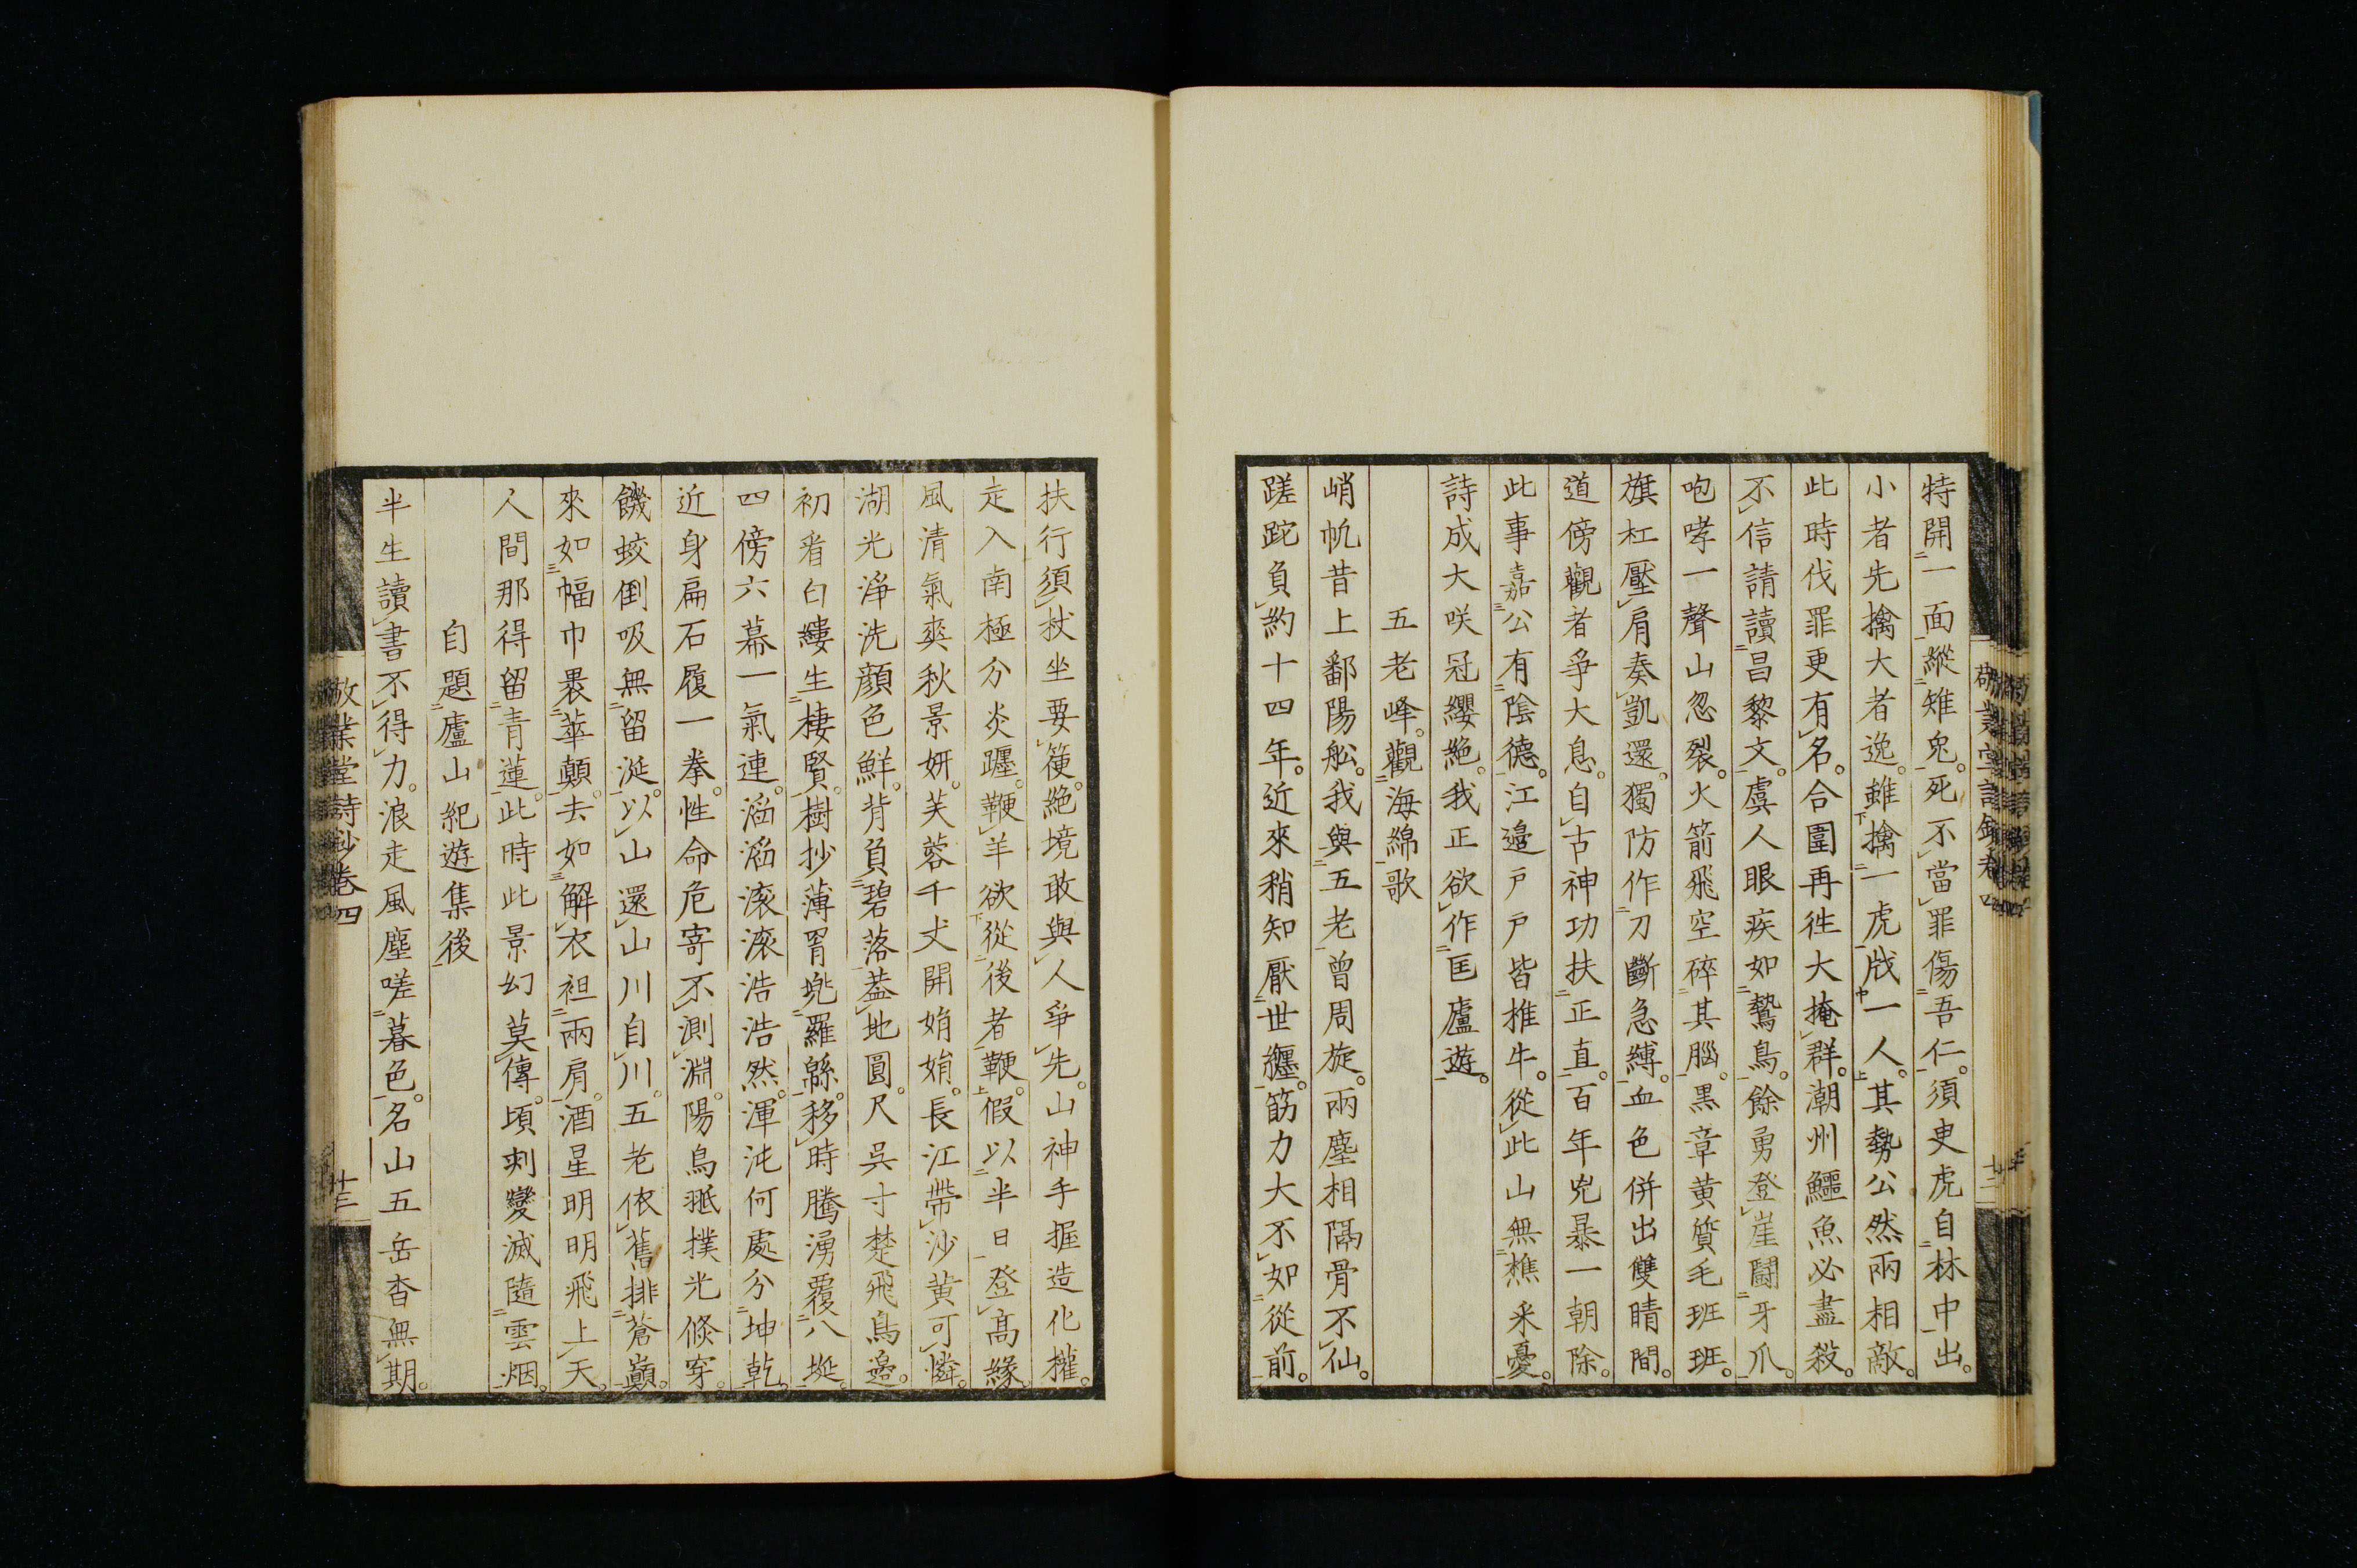 特開一面縱雉兔。死不當罪傷吾仁。須臾虎自林中出。
小者先擒大者逸。雖擒一虎戕一人。其勢公然兩相敵。
此時伐罪更有名。合圍再往大掩群。潮州鱷魚必盡殺。
不信請讀昌黎文。虞人眼疾如鷙鳥。餘勇登崖鬪牙爪。
咆哮一聲山忽裂。火箭飛空碎其腦。黒章黄質毛班班。
旗杠壓肩奏凱還。獨防作刀斷急縛。血色併出雙睛間。
道傍觀者爭大息。自古神功扶正直。百年兇暴一朝除。
此事嘉公有陰德。江邊戸戸皆椎牛。從此山無樵釆憂。
詩成大咲冠纓絶。我正欲作匡廬遊。
五老峰。觀海綿歌
峭帆昔上鄱陽舩。我與五老曾周旋。兩塵相隔骨不仙。
蹉跎負約十四年。近來稍知厭世纏。筋力大不如從前。
扶行須杖坐要箯。絶境敢與人爭先。山神手握造化權。
走入南極分炎躔。鞭羊欲從後者鞭。假以半日登髙緣。
風清氣爽秋景妍。芙蓉千丈開娟娟。長江帶沙黄可憐。
湖光淨洗顔色鮮。背負碧落葢地圓。尺吳寸楚飛鳥邊。
初看白縷生棲賢。樹抄薄罥兠羅緜。移時騰湧覆八埏。
四傍六幕一氣連。滔滔滚滚浩浩然。渾沌何處分坤乾。
近身扁石履一拳。性命危寄不測淵。陽鳥抵撲光倏穿。
饑蛟倒吸無留涎。以山還山川自川。五老依舊排蒼巔。
來如幅巾褁華顛。去如解衣袒兩肩。酒星明明飛上天。
人間那得留青蓮。此時此景幻莫傳。頃刺變滅隨雲烟。
自題廬山紀遊集後
半生讀書不得力。浪走風塵嗟暮色。名山五岳杳無期。
敬業堂詩鈔卷四
十三